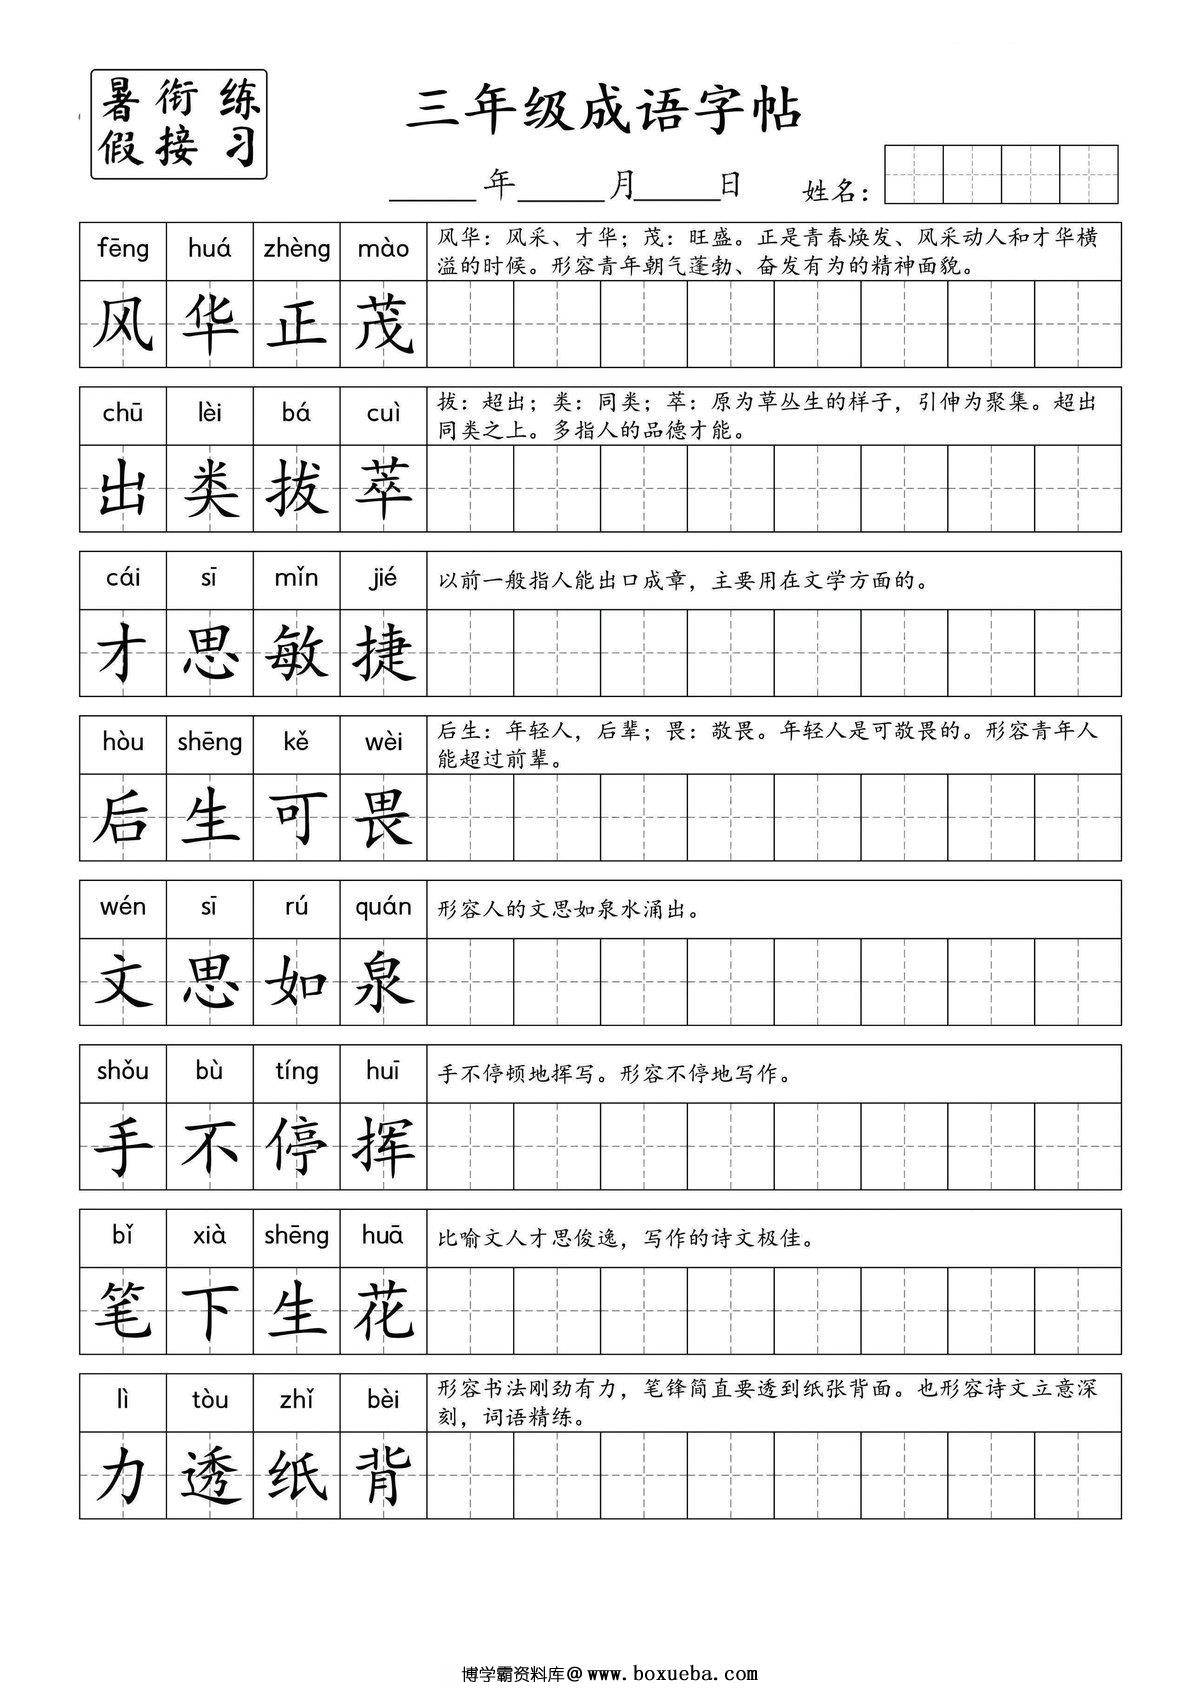 暑衔练
假接习
三年级成语字帖
年 月 日 姓名：
fēng huá zhèng mào
风华：风采、才华；茂：旺盛。正是青春焕发、风采动人和才华横
溢的时候。形容青年朝气蓬勃、奋发有为的精神面貌。
风华正茂
chū lèi bá cuì
拔：超出；类：同类；萃：原为草丛生的样子，引伸为聚集。超出
同类之上。多指人的品德才能。
出类拔萃
cái sī mǐn jié
以前一般指人能出口成章，主要用在文学方面的。
才思敏捷
hòu shēng kě wèi
后生：年轻人，后辈；畏：敬畏。年轻人是可敬畏的。形容青年人
能超过前辈。
后生可畏
wén sī rú quán
形容人的文思如泉水涌出。
文思如泉
shǒu bù tíng huī
手不停顿地挥写。形容不停地写作。
手不停挥
bǐ xià shēng huā
比喻文人才思俊逸，写作的诗文极佳。
笔下生花
lì tòu zhǐ bèi
形容书法刚劲有力，笔锋简直要透到纸张背面。也形容诗文立意深
刻，词语精练。
力透纸背
博学霸资料库@www.boxueba.com